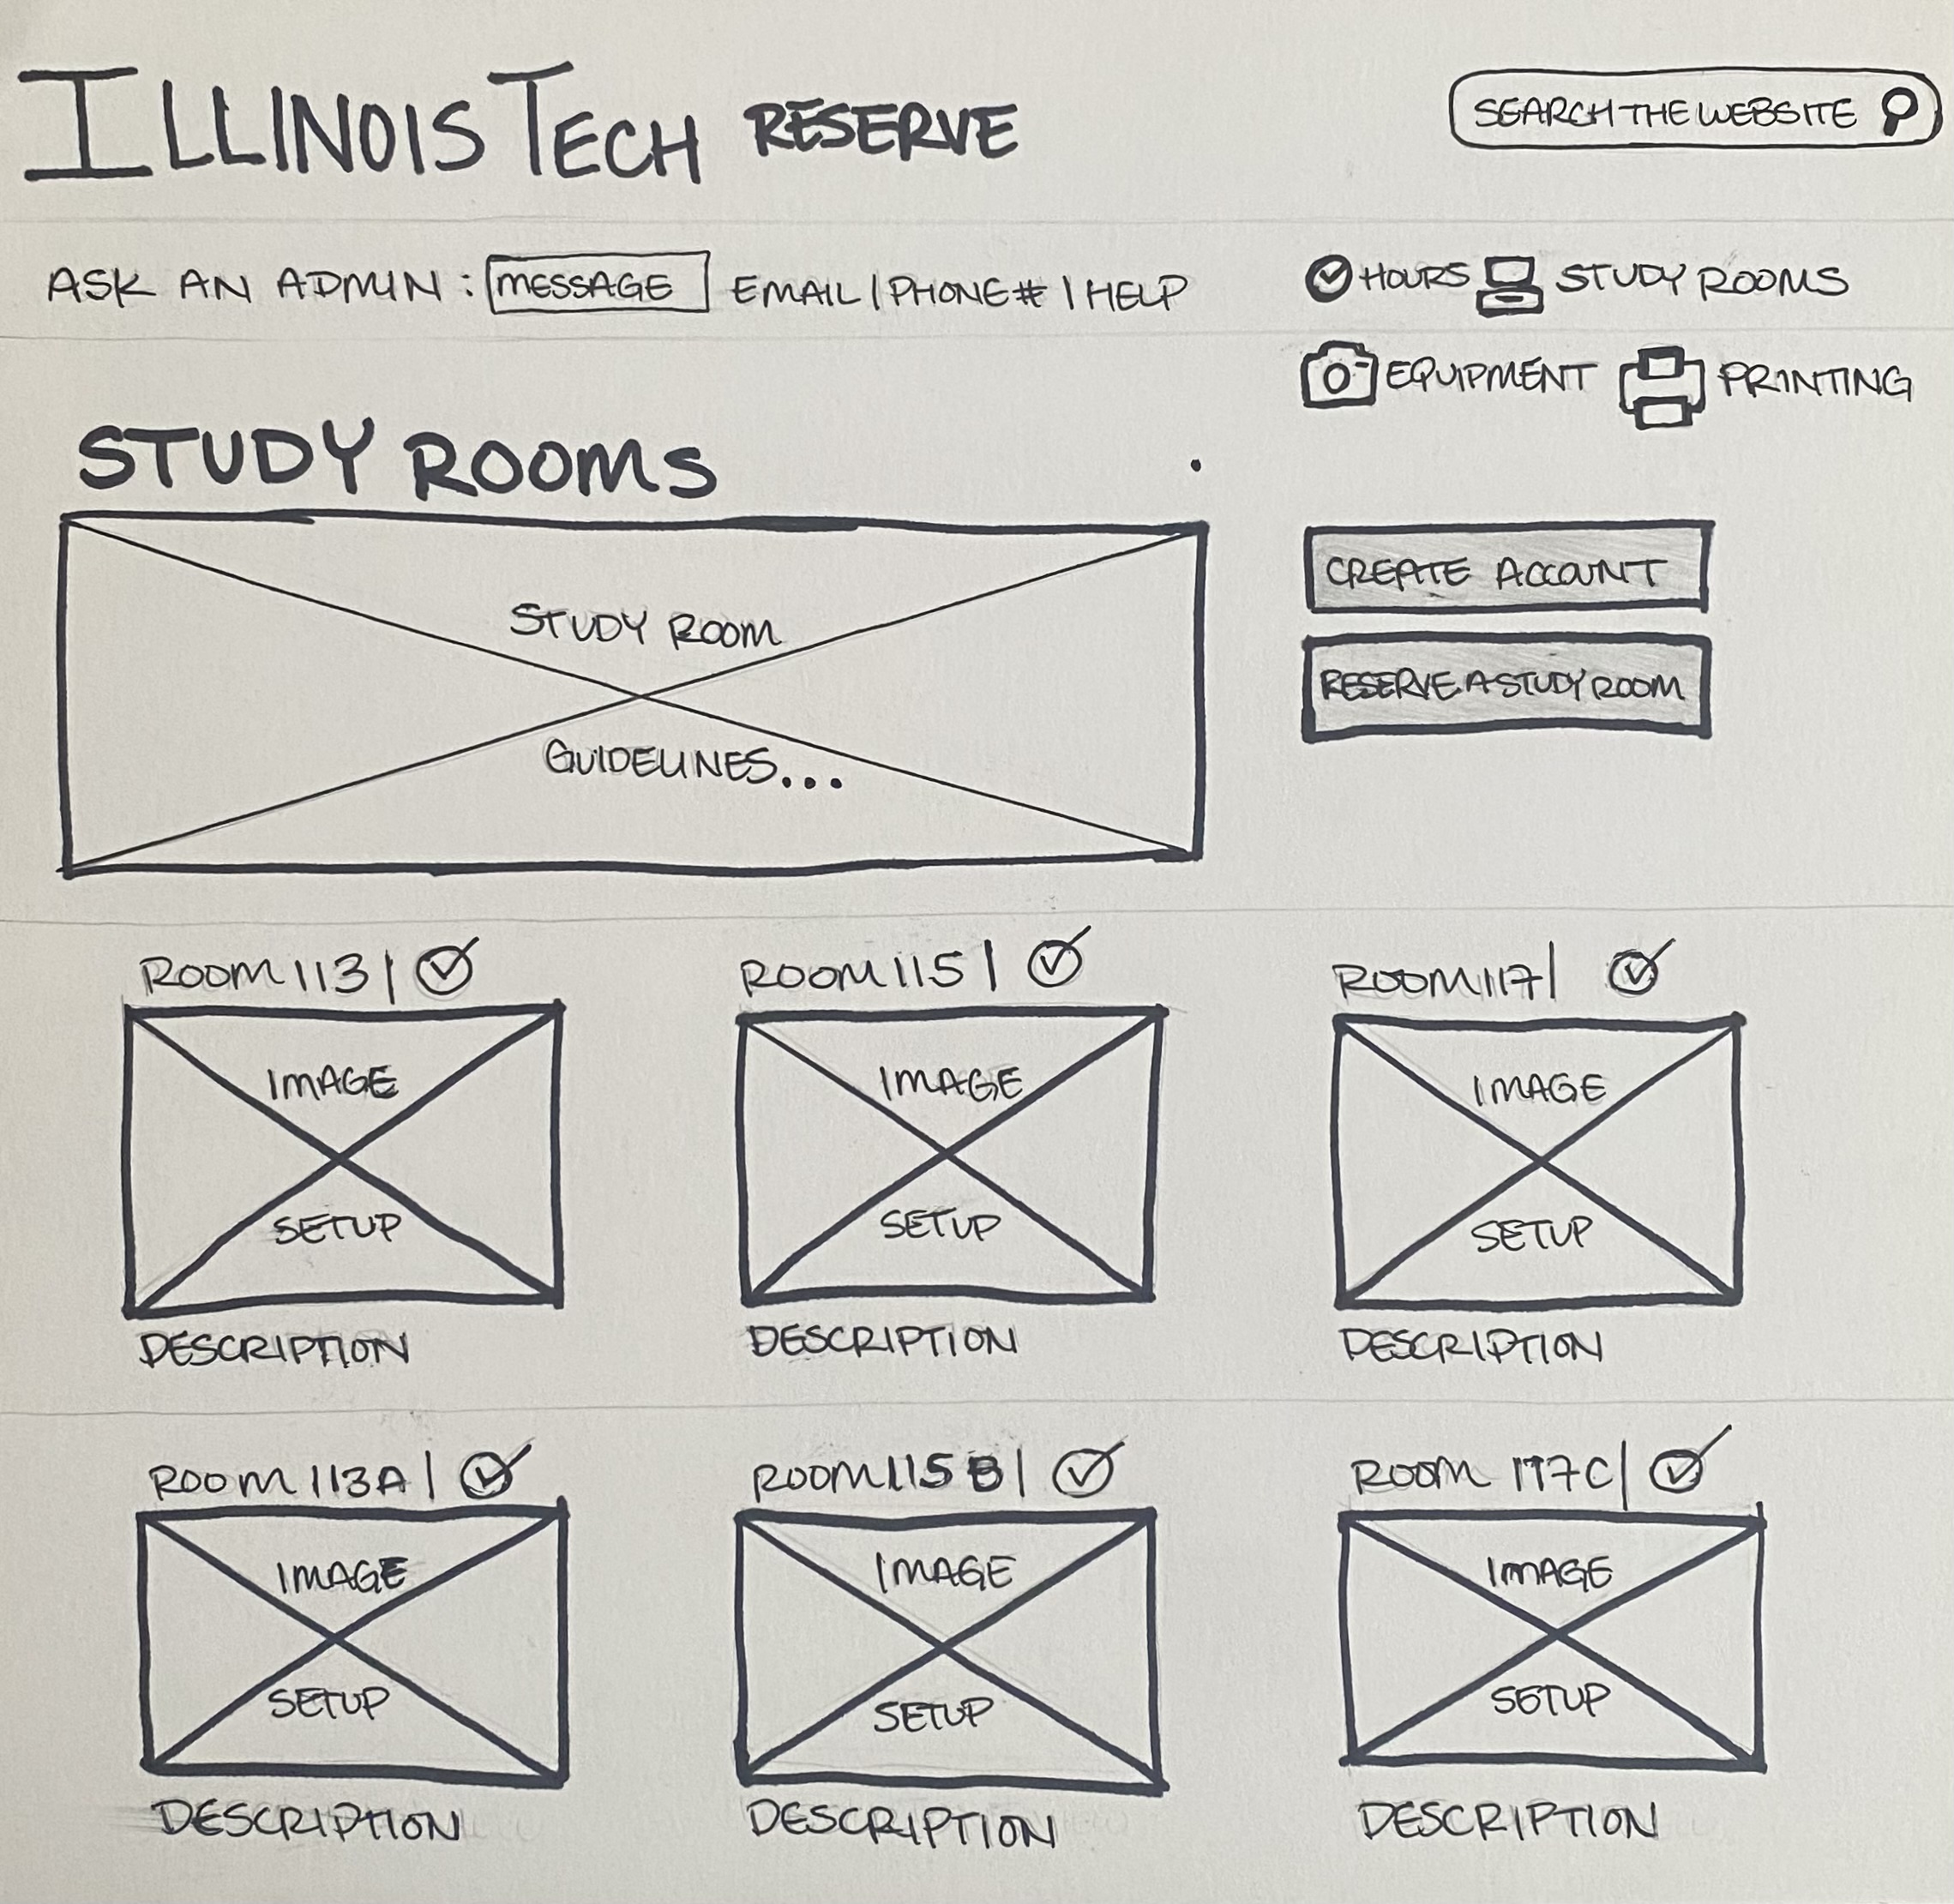 ILLINOIS TECH RESERVE
SEARCH THE WEBSITE
ASK AN ADMIN: MESSAGE EMAIL | PHONE # | HELP
HOURS STUDY ROOMS
EQUIPMENT PRINTING
STUDY ROOMS
STUDY ROOM
GUIDELINES...
CREATE ACCOUNT
RESERVE A STUDY ROOM
ROOM 113 |
IMAGE
SETUP
DESCRIPTION
ROOM 115 |
IMAGE
SETUP
DESCRIPTION
ROOM 117 |
IMAGE
SETUP
DESCRIPTION
ROOM 113A |
IMAGE
SETUP
DESCRIPTION
ROOM 115B |
IMAGE
SETUP
DESCRIPTION
ROOM 117C |
IMAGE
SETUP
DESCRIPTION